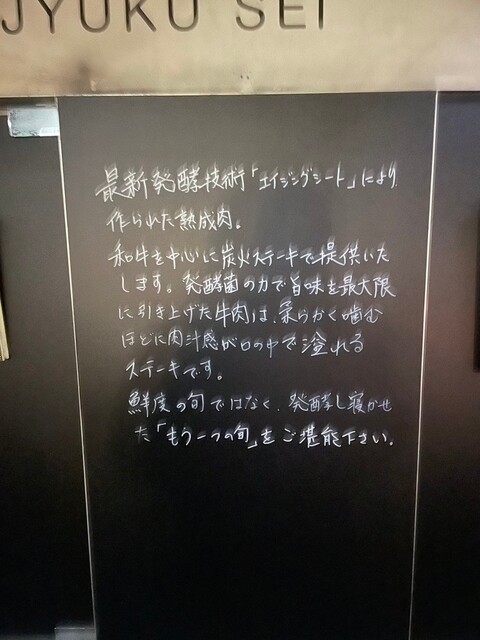 JYUKU SEI
最新発酵技術「エイジングシート」により
作られた熟成肉。
和牛を中心に炭火ステーキで提供いた
します。発酵菌の力で旨味を最大限
に引き上げた牛肉は、柔らかく噛む
ほどに肉汁感が口の中で溢れる
ステーキです。
鮮度の旬ではなく、発酵し寝かせ
た「もう一つの旬」をご堪能下さい。